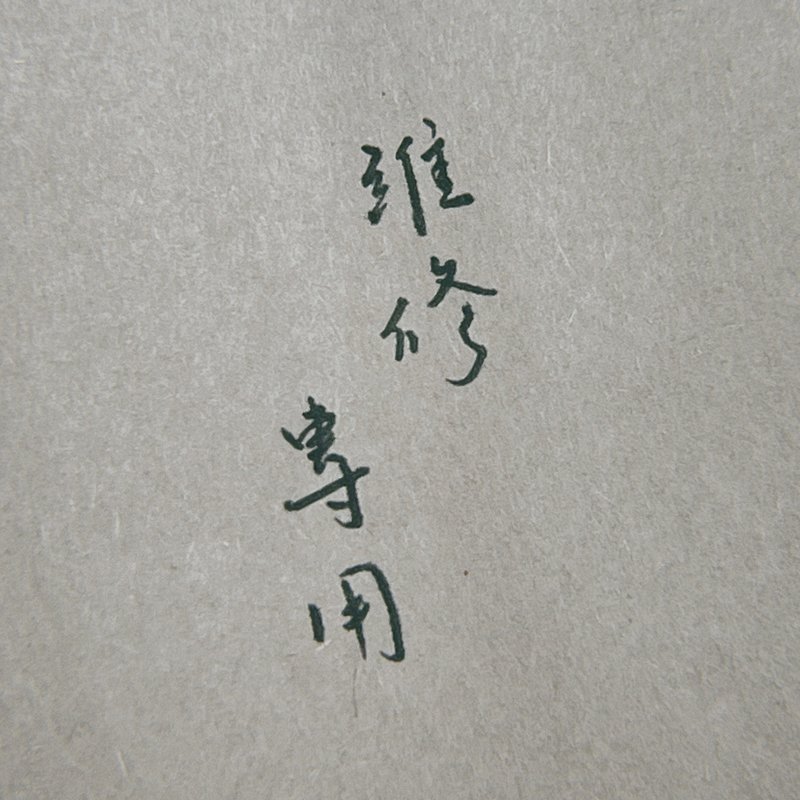 維修
專用